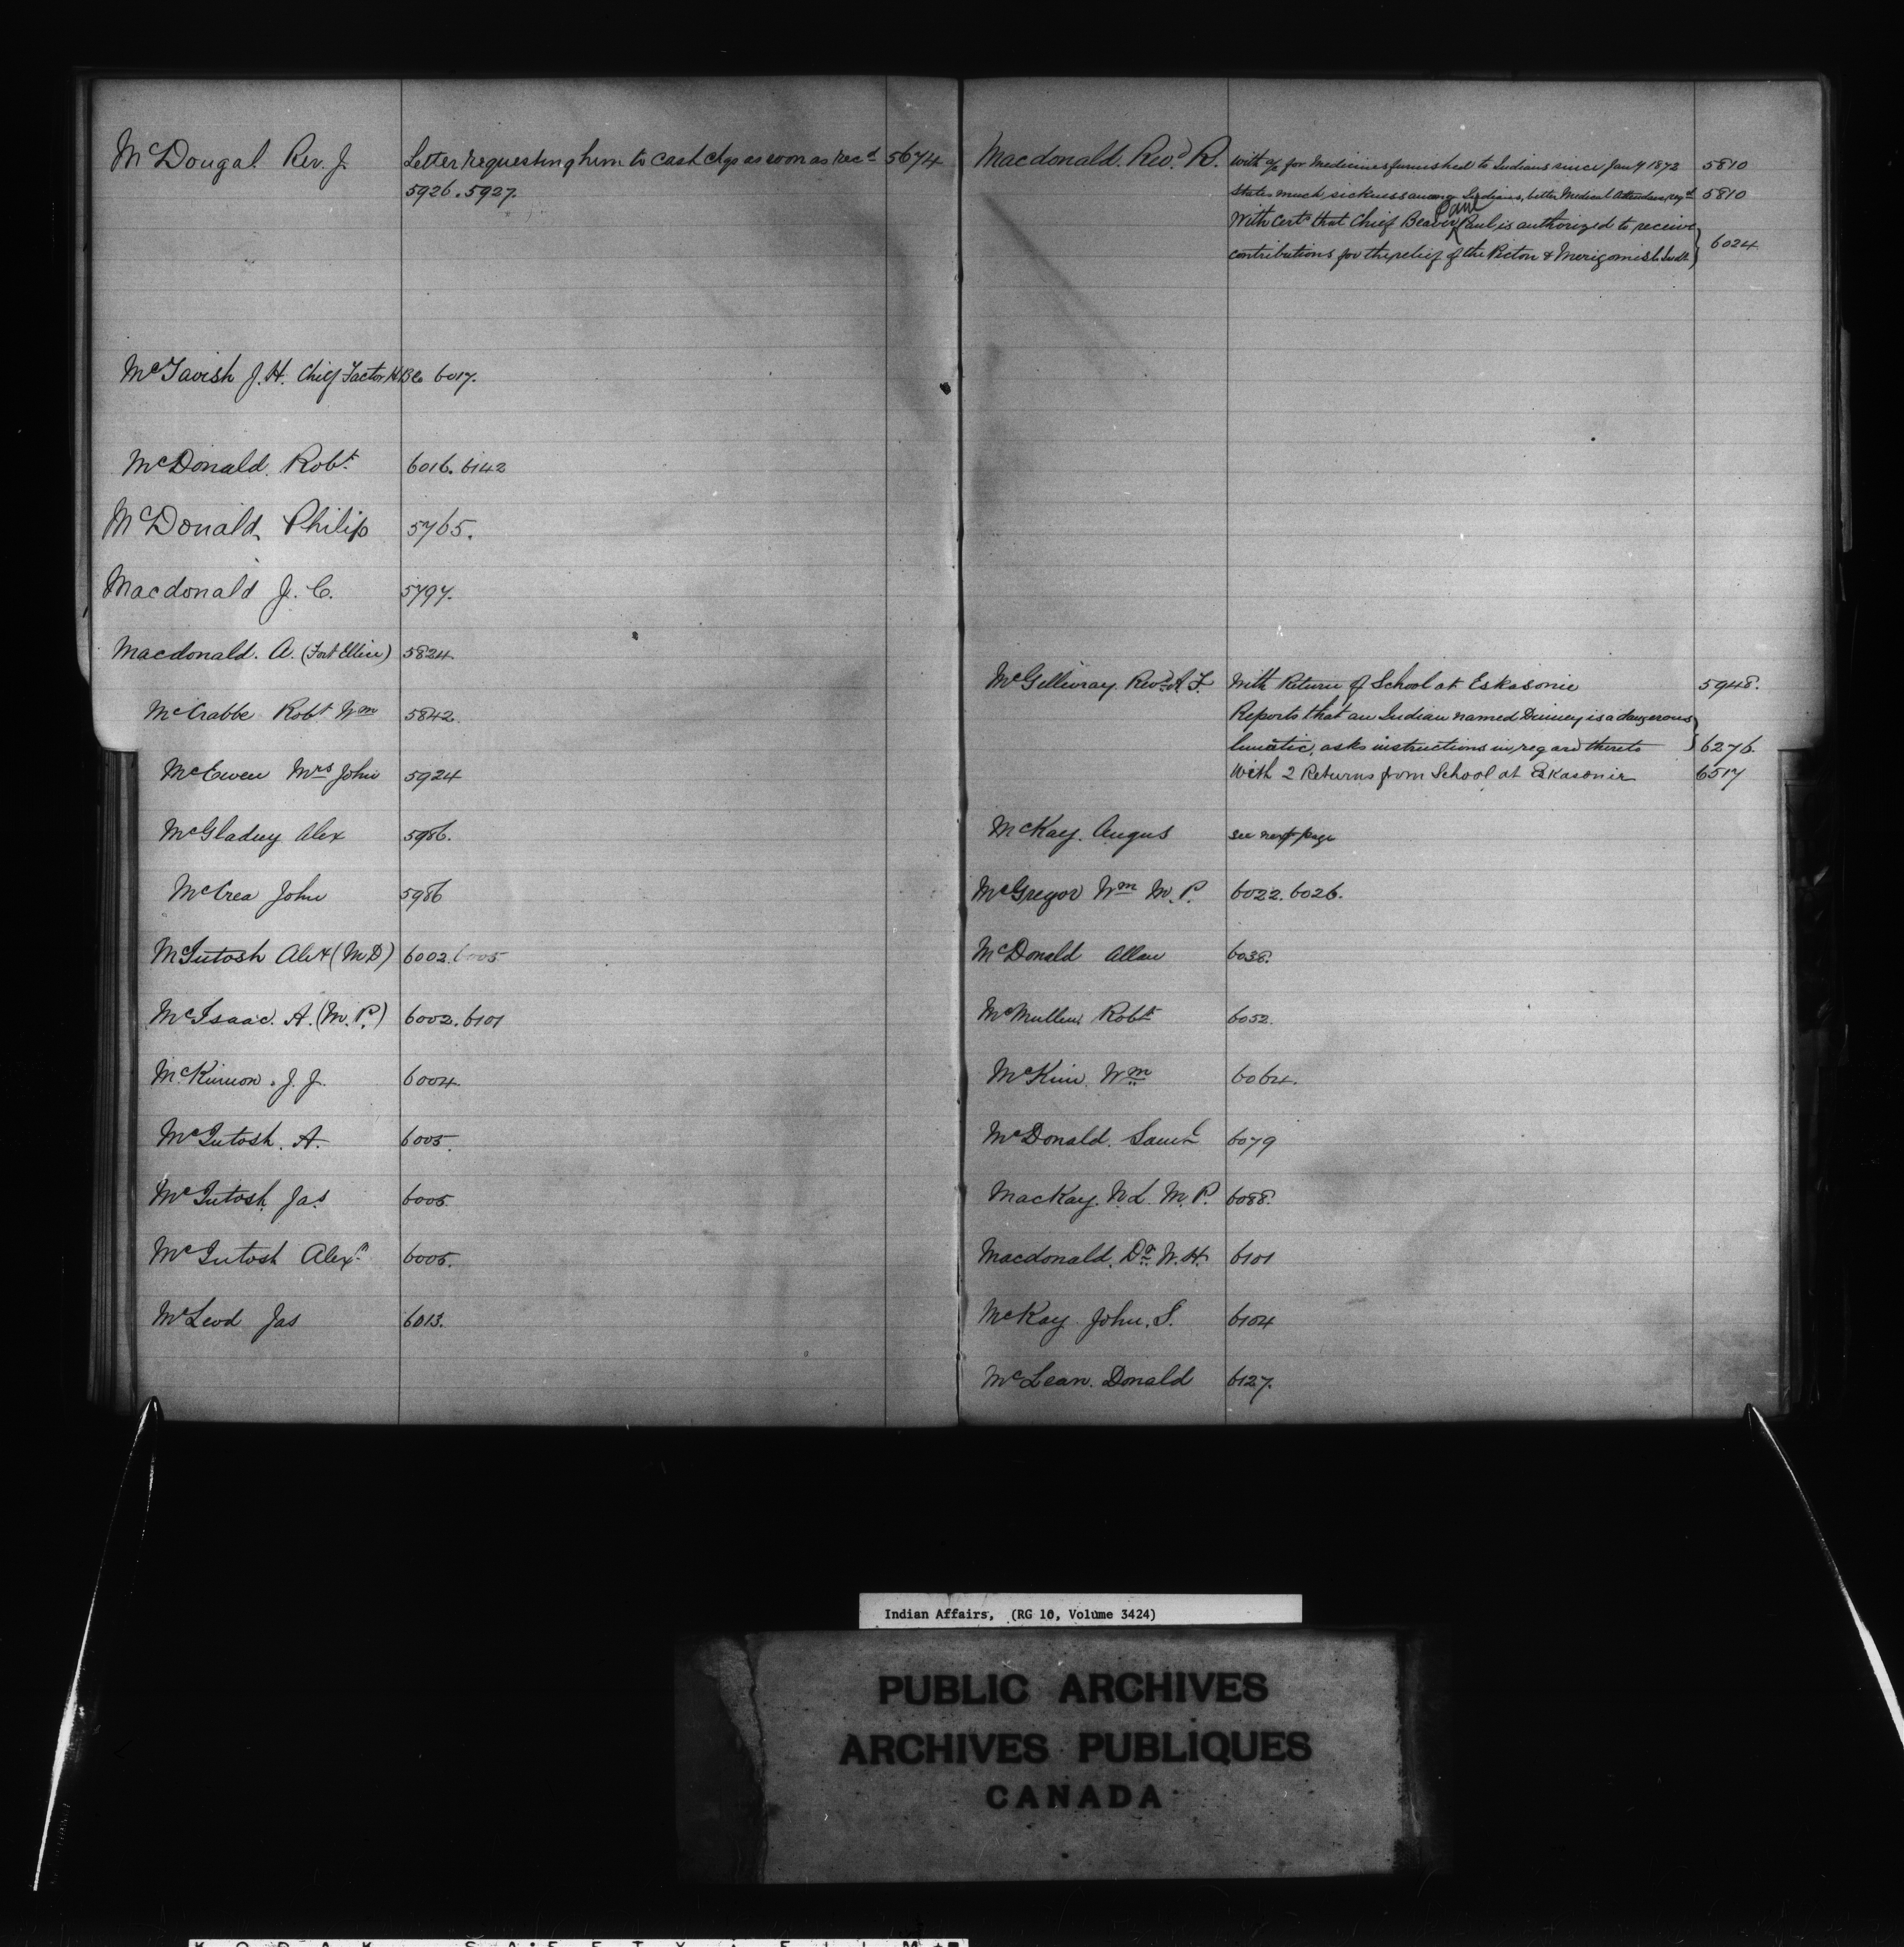 McDougal Rev. J. Letter requesting him to cash chqs as soon as recd 5674
5926. 5927.
McTavish J. H. Chief Factor H B Co 6017.
McDonald. Robt 6016. 6142
McDonald, Philip 5765.
Macdonald J. C. 5797.
Macdonald. A. (Fort Ellice) 5824
McCrabbe Robt Wm 5842.
McEwen Mrs John 5924
McGladery Alex 5986.
McCrea John 5986
McIntosh Alex (M.D) 6002. 6005
McIsaac. A. (M. P.) 6002. 6101
McKinnon. J. J. 6004.
McIntosh. A. 6005.
McIntosh Jas 6005.
McIntosh Alexr 6005.
McLeod Jas 6013.
Macdonald. Revd R. With a/c for Medicines furnished to Indians since Jany 1872 5810
States much sickness among Indians, better Medical Attendance reqd 5810
Pam
With Certe that Chief Beaver Paul is authorized to receive
contributions for the relief of the Picton & Merigomish Inds 6024
McGillivray. Revd A F. With Return of School at Eskasonie 5948.
Reports that an Indian named Denney is a dangerous
lunatic, asks instructions in regard thereto 6276.
With 2 Returns from School at Eskasonie 6517
McKay. Angus see next page
McGregor Wm M. P. 6022. 6026.
McDonald Allan 6038.
McMullen Robt 6052.
McKim. Wm 6064.
McDonald. Saml 6079
MacKay. N. L. M. P. 6088.
Macdonald. Dr W. H. 6101
McKay John. S. 6104
McLean. Donald 6127.
Indian Affairs, (RG 10, Volume 3424)
PUBLIC ARCHIVES
ARCHIVES PUBLIQUES
CANADA
KODAK SAFETY FILM